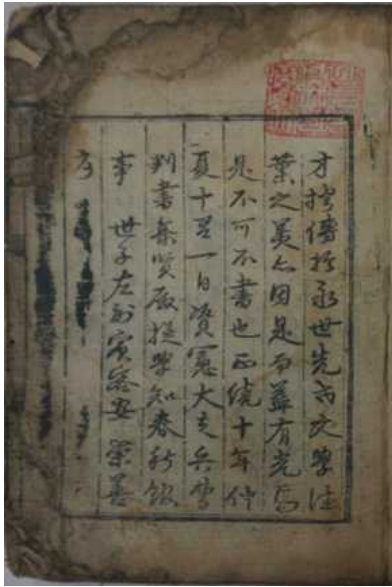 傳於永世先文學
葉之美亦因是而益有光焉
是不可不書也正統十年仲
夏十一日資憲大夫兵曹
判書集賢殿提學知春秋館
事 世子左副賓客安 崇善
序